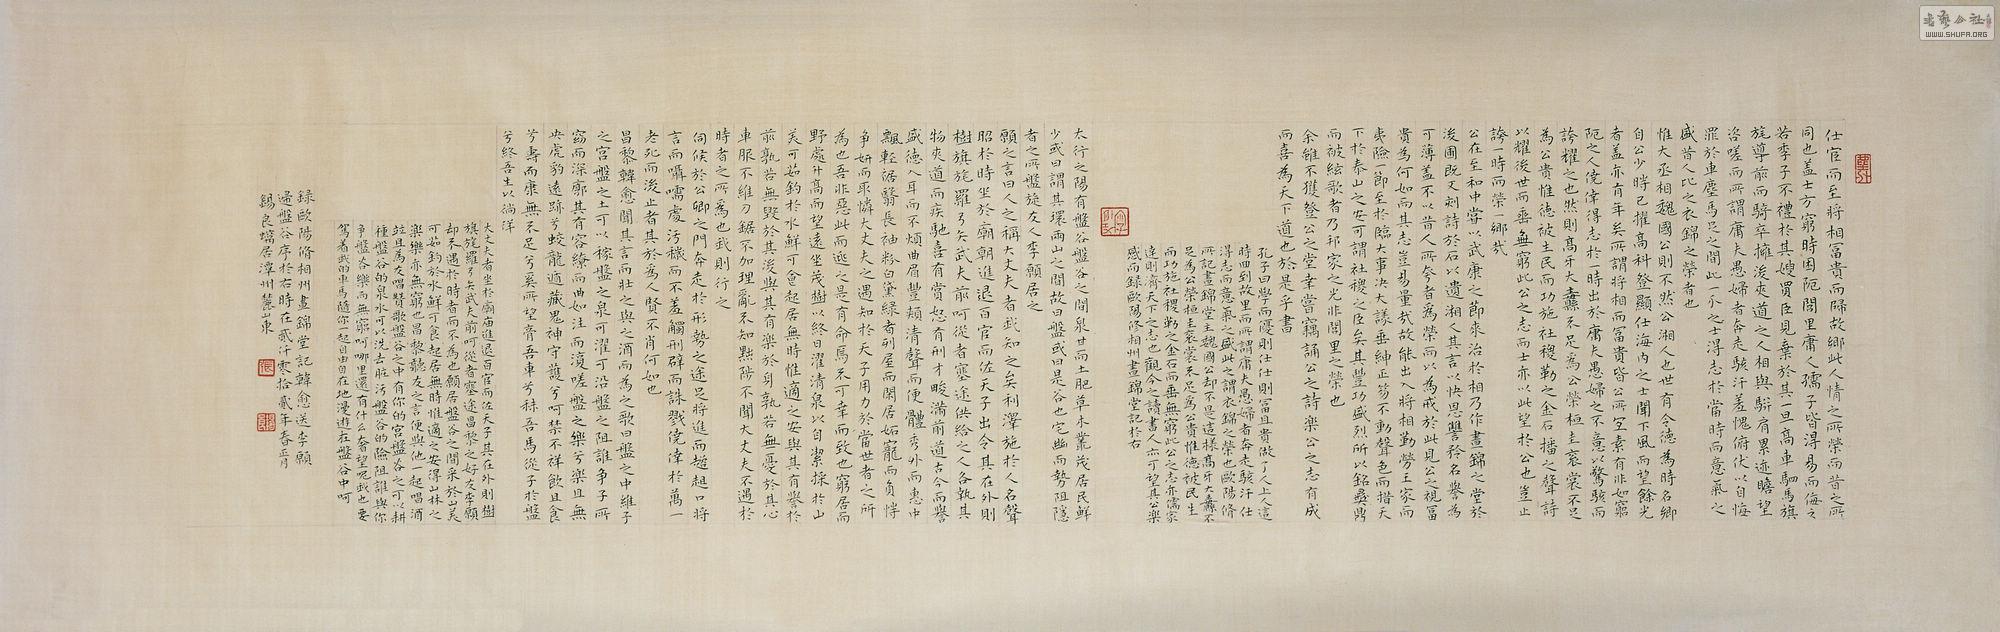 仕宦而至將相富貴而歸故鄉此人情之所榮而昔之所
同也蓋士方窮時困阨閭里庸人孺子皆得易而侮之
若季子不禮於其嫂買臣見棄於其一旦高車駟馬旗
旄導前而騎卒擁後夾道之人相與駢肩累迹瞻望
咨嗟而所謂庸夫愚婦者奔走駭汗羞愧俯伏以自悔
罪於車塵馬足之間此一介之士得志於當時而意氣之
盛昔人比之衣錦之榮者也
惟大丞相魏國公則不然公湘人也世有令德為時名鄉
自公少時已擢高科登顯仕海內之士聞下風而望餘光
者蓋亦有年矣所謂將相而富貴皆公所宜素有非如窮
阨之人僥倖得志於一時出於庸夫愚婦之不意以驚駭而
誇耀之也然則高牙大纛不足為公榮桓圭袞裳不足
為公貴惟德被生民而功施社稷勒之金石播之聲詩
以耀後世而垂無窮此公之志而士亦以此望於公也豈止
誇一時而榮一鄉哉
公在至和中嘗以武康之節來治於相乃作晝錦之堂於
後圃既又刻詩於石以遺湘人其言以快恩讐矜名譽為
可薄蓋不以昔人所夸者為榮而以為戒於此見公之視富
貴為何如而其志豈易量哉故能出入將相勤勞王家而
夷險一節至於臨大事決大議垂紳正笏不動聲色而措天
下於泰山之安可謂社稷之臣矣其豐功盛烈所以銘彝鼎
而被絃歌者乃邦家之光非閭里之榮也
余雖不獲登公之堂幸嘗竊誦公之詩樂公之志有成
而喜為天下道也於是乎書
孔子曰學而優則仕仕則富且貴做了人上人這
時回到故里而所謂庸夫愚婦者奔走駭汗仕
得志而意氣之盛此之謂衣錦之榮也歐陽脩
所記晝錦堂主魏國公却不是這樣高牙大纛不
足為公榮桓圭袞裳不足為公貴惟德被民生
而功施社稷勒之金石而垂無窮此公之志亦儒家
達則濟天下之志也觀今之讀書人亦可望其公樂
感而録歐陽脩相州晝錦堂記於右
太行之陽有盤谷盤谷之間泉甘而土肥草木藂茂居民鮮
少或曰謂其環兩山之間故曰盤或曰是谷也宅幽而勢阻隱
者之所盤旋友人李愿居之
愿之言曰人之稱大丈夫者我知之矣利澤施於人名聲
昭於時坐於廟朝進退百官而佐天子出令其在外則
樹旗旄羅弓矢武夫前呵從者塞途供給之人各執其
物夾道而疾馳喜有賞怒有刑才畯滿前道古今而譽
盛德入耳而不煩曲眉豐頰清聲而便體秀外而惠中
飄輕裾翳長袖粉白黛綠者列屋而閑居妬寵而負恃
爭妍而取憐大丈夫之遇知於天子用力於當世者之所
為也吾非惡此而逃之是有命焉不可幸而致也窮居而
野處升高而望遠坐茂樹以終日濯清泉以自潔採於山
美可茹釣於水鮮可食起居無時惟適之安與其有譽於
前孰若無毀於其後與其有樂於身孰若無憂於其心
車服不維刀鋸不加理亂不知黜陟不聞大丈夫不遇於
時者之所為也我則行之
伺候於公卿之門奔走於形勢之途足將進而趑趄口將
言而囁嚅處汚穢而不羞觸刑辟而誅戮僥倖於萬一
老死而後止者其於為人賢不肖何如也
昌黎韓愈聞其言而壯之與之酒而為之歌曰盤之中維子
之宮盤之土可以稼盤之泉可濯可沿盤之阻誰爭子所
窈而深廓其有容繚而曲如往而復嗟盤之樂兮樂且無
央虎豹遠跡兮蛟龍遁藏鬼神守護兮呵禁不祥飲且食
兮壽而康無不足兮奚所望膏吾車兮秣吾馬從子於盤
兮終吾生以徜徉
大丈夫者坐於廟庙進退百官而佐天子其在外則樹
旗旄羅弓矢武夫前呵從者塞途昌黎之好友李愿
却不遇於時者而不為也愿居盤谷之間采於山美
可如釣於水鮮可食起居無時惟適之安得山林之
樂樂亦無窮也昌黎聽友之言便與他一起唱酒
並且為友唱贊歌盤谷之中有你的宮盤谷之可以耕
種盤谷的泉水可以洗去脏污盤谷的險阻誰與你
爭盤谷樂而無窮呵哪里還有什么奢望呢我也要
駕着我的車馬隨你一起自由自在地漫遊在盤谷中呵
録歐陽脩相州晝錦堂記韓愈送李願
歸盤谷序於右時在貳仟零拾貳年春正月
錫良
WWW.SHUFA.ORG